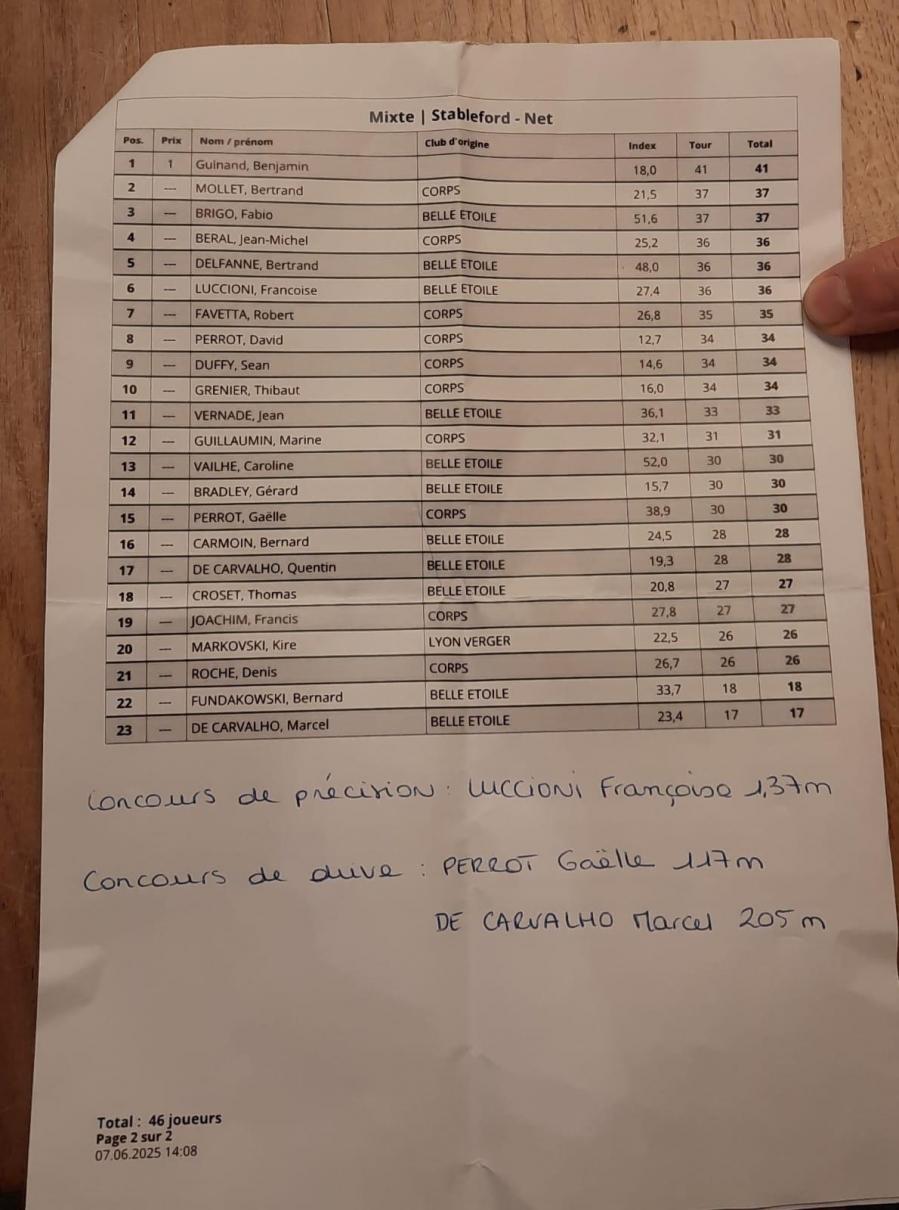 Mixte | Stableford - Net
Pos. Prix Nom / prénom Club d'origine Index Tour Total
1 1 Guinand, Benjamin 18,0 41 41
2 --- MOLLET, Bertrand CORPS 21,5 37 37
3 --- BRIGO, Fabio BELLE ETOILE 51,6 37 37
4 --- BERAL, Jean-Michel CORPS 25,2 36 36
5 --- DELFANNE, Bertrand BELLE ETOILE 48,0 36 36
6 --- LUCCIONI, Francoise BELLE ETOILE 27,4 36 36
7 --- FAVETTA, Robert CORPS 26,8 35 35
8 --- PERROT, David CORPS 12,7 34 34
9 --- DUFFY, Sean CORPS 14,6 34 34
10 --- GRENIER, Thibaut CORPS 16,0 34 34
11 --- VERNADE, Jean BELLE ETOILE 36,1 33 33
12 --- GUILLAUMIN, Marine CORPS 32,1 31 31
13 --- VAILHE, Caroline BELLE ETOILE 52,0 30 30
14 --- BRADLEY, Gérard BELLE ETOILE 15,7 30 30
15 --- PERROT, Gaëlle CORPS 38,9 30 30
16 --- CARMOIN, Bernard BELLE ETOILE 24,5 28 28
17 --- DE CARVALHO, Quentin BELLE ETOILE 19,3 28 28
18 --- CROSET, Thomas BELLE ETOILE 20,8 27 27
19 --- JOACHIM, Francis CORPS 27,8 27 27
20 --- MARKOVSKI, Kire LYON VERGER 22,5 26 26
21 --- ROCHE, Denis CORPS 26,7 26 26
22 --- FUNDAKOWSKI, Bernard BELLE ETOILE 33,7 18 18
23 --- DE CARVALHO, Marcel BELLE ETOILE 23,4 17 17
Concours de précision : LUCCIONI Françoise 1,37m
Concours de drive : PERROT Gaëlle 117m
DE CARVALHO Marcel 205 m
Total : 46 joueurs
Page 2 sur 2
07.06.2025 14:08